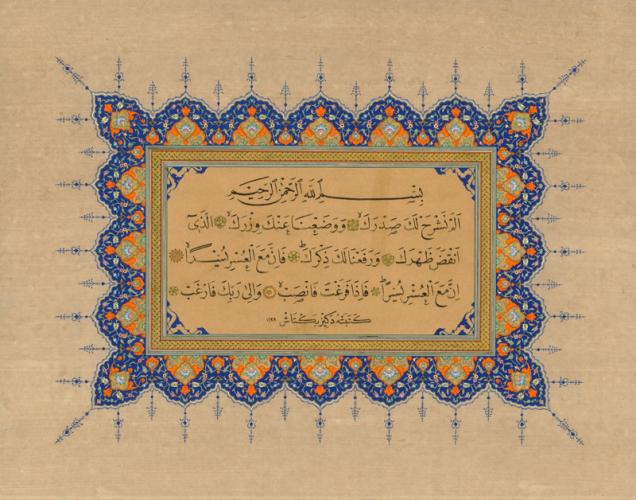 بِسْمِ ٱللّٰهِ ٱلرَّحْمٰنِ ٱلرَّحِيمِ
اَلَمْ نَشْرَحْ لَكَ صَدْرَكَ وَوَضَعْنَا عَنْكَ وِزْرَكَ اَلَّذِى
اَنْقَضَ ظَهْرَكَ وَرَفَعْنَا لَكَ ذِكْرَكَ فَاِنَّ مَعَ الْعُسْرِ يُسْرًا
اِنَّ مَعَ الْعُسْرِ يُسْرًا فَاِذَا فَرَغْتَ فَانْصَبْ وَاِلٰى رَبِّكَ فَارْغَبْ